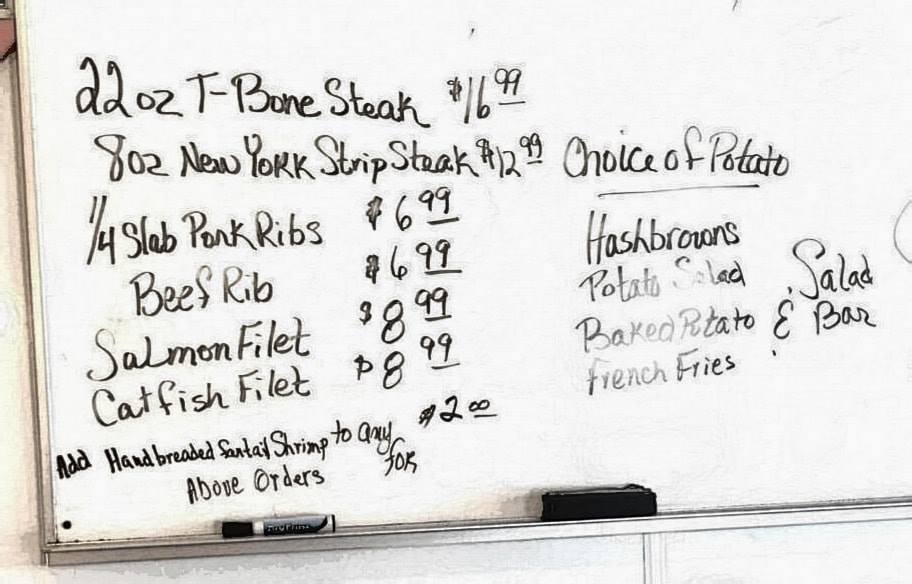 22oz T-Bone Steak $16.99
8oz New York Strip Steak $12.99
1/4 Slab Pork Ribs $6.99
Beef Rib $6.99
Salmon Filet $8.99
Catfish Filet $8.99
Add Handbreaded Fantail Shrimp to any $2.00
Above Orders for
Choice of Potato
Hashbrowns
Potato Salad
Baked Potato
French Fries
& Salad
Bar